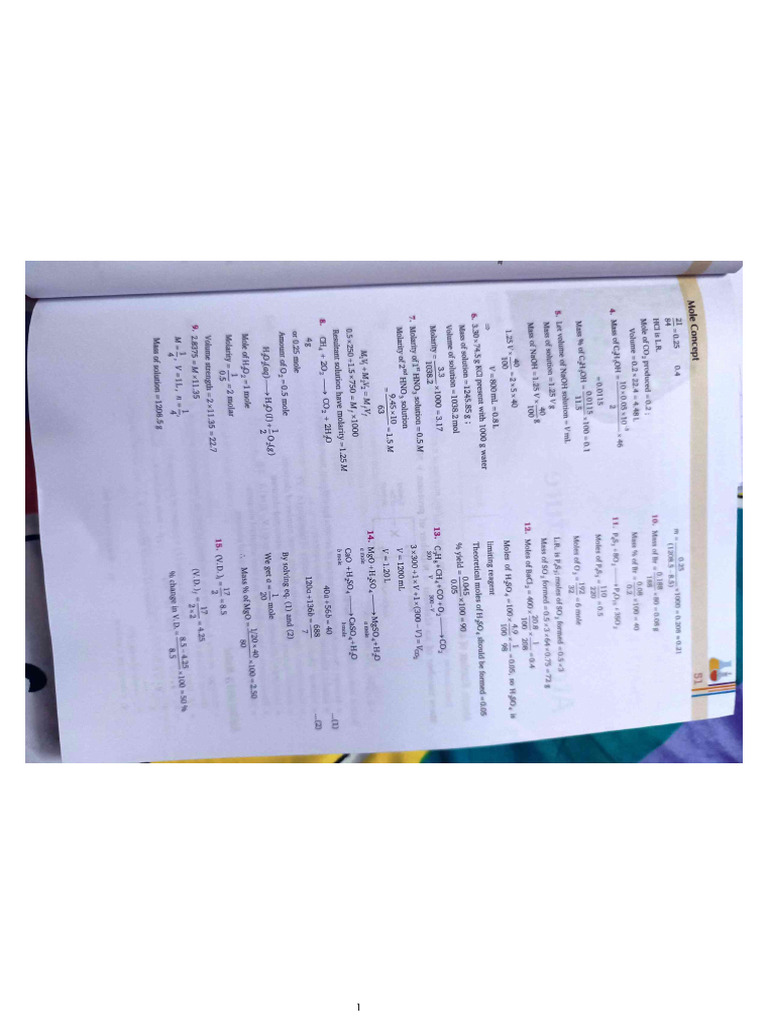 Mole Concept
51
21/84 = 0.25 0.4
HCl is L.R.
Mole of CO2 produced = 0.2 ;
Volume = 0.2 × 22.4 = 4.48 L
4. Mass of C2H5OH = (10 × 0.05 × 10⁻³)/2 × 46
= 0.0115
Mass % of C2H5OH = 0.0115/11.5 × 100 = 0.1
5. Let volume of NaOH solution = V mL
Mass of solution = 1.25 V g
Mass of NaOH = 1.25 V × 40/100 g
1.25 V × 40/100 = 2 × 5 × 40
⇒ V = 800 mL = 0.8 L
6. 3.30 × 74.5 g KCl present with 1000 g water
Mass of solution = 1245.85 g ;
Volume of solution = 1038.2 mol
Molarity = 3.3/1038.2 × 1000 = 3.17
7. Molarity of 1st HNO3 solution = 0.5 M
Molarity of 2nd HNO3 solution
= 9.45 × 10/63 = 1.5 M
M1V1 + M2V2 = MfVf
0.5 × 250 + 1.5 × 750 = Mf × 1000
Resultant solution have molarity = 1.25 M
8. CH4 + 2O2 ⟶ CO2 + 2H2O
4g
or 0.25 mole
Amount of O2 = 0.5 mole
H2O2(aq) ⟶ H2O(l) + 1/2 O2(g)
Mole of H2O2 = 1 mole
Molarity = 1/0.5 = 2 molar
Volume strength = 2 × 11.35 = 22.7
9. 2.8375 = M × 11.35
M = 1/4, V = 1 L, n = 1/4
Mass of solution = 1208.5 g
m = 0.25/(1208.5 − 8.5) × 1000 = 0.208 ≈ 0.21
10. Mass of Br = 0.188/188 × 80 = 0.08 g
Mass % of Br = 0.08/0.2 × 100 = 40
11. P4S3 + 8O2 ⟶ P4O10 + 3SO2
Moles of P4S3 = 110/220 = 0.5
Moles of O2 = 192/32 = 6 mole
L.R. is P4S3; moles of SO2 formed = 0.5 × 3
Mass of SO2 formed = 0.5 × 3 × 64 × 0.75 = 72 g
12. Moles of BaCl2 = 400 × 20.8/100 × 1/208 = 0.4
Moles of H2SO4 = 100 × 4.9/100 × 1/98 = 0.05, so H2SO4 is
limiting reagent
Theoretical moles of H2SO4 should be formed = 0.05
% yield = 0.045/0.05 × 100 = 90
13. C3H8 + CH4 + CO + O2 ⟶ CO2
300 V 300−V
3 × 300 + 1 × V + 1 × (300 − V) = VCO2
V = 1200 mL
V = 1.20 L
14. MgO + H2SO4 ⟶ MgSO4 + H2O
a mole a mole
CaO + H2SO4 ⟶ CaSO4 + H2O
b mole b mole
40a + 56b = 40 ...(1)
120a + 136b = 688/7 ...(2)
By solving eq. (1) and (2)
We get a = 1/20 mole
∴ Mass % of MgO = (1/20 × 40)/80 × 100 = 2.50
15. (V.D.)i = 17/2 = 8.5
(V.D.)f = 17/(2 × 2) = 4.25
% change in V.D. = (8.5 − 4.25)/8.5 × 100 = 50 %
1